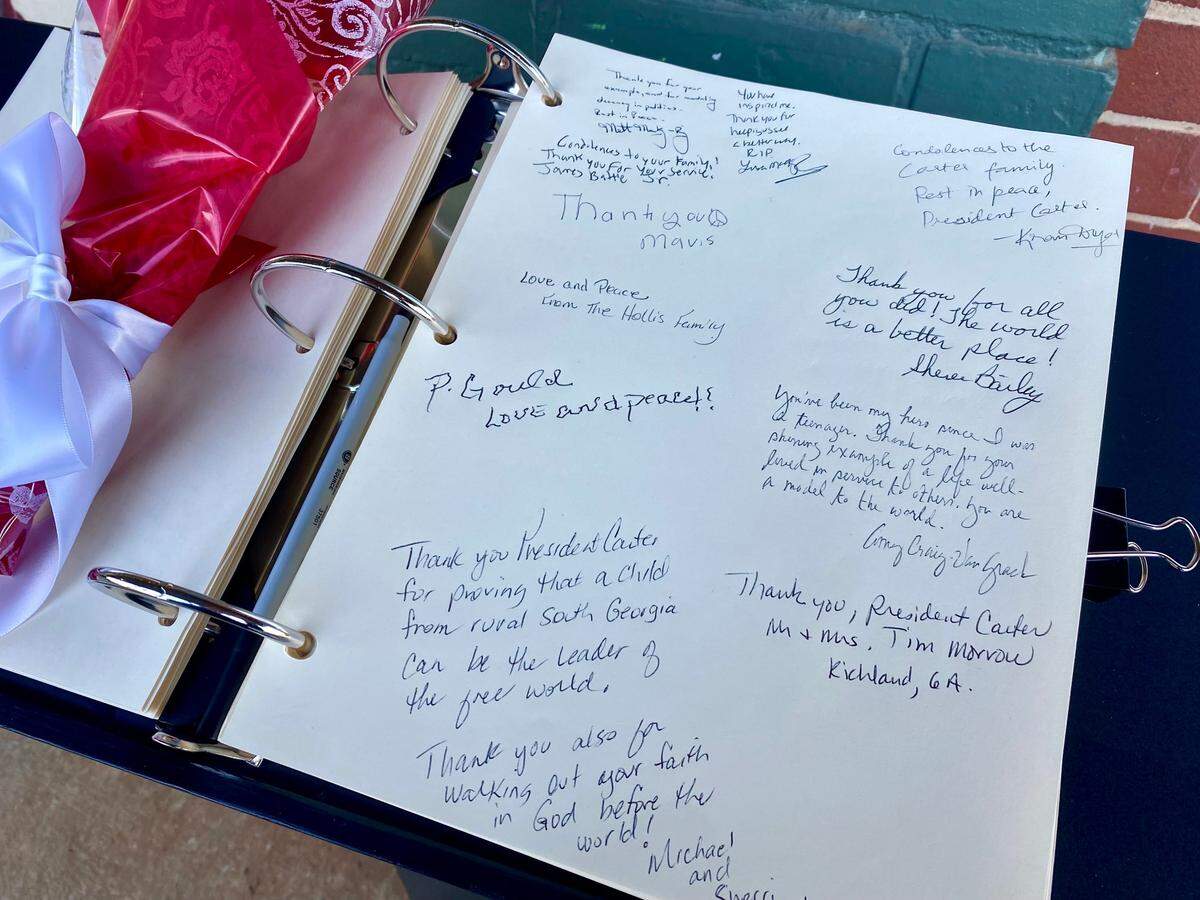 Thank you for your
example, and for modeling
decency in politics.
Rest in Peace.
Condolences to your Family!
Thank you For Your Service!
James Battle Sr.
Thank you
Mavis
Love and Peace
From The Hollis Family
P. Gould
Love and peace!!
Thank you President Carter
for proving that a child
from rural South Georgia
can be the leader of
the free world.
Thank you also for
walking out your faith
in God before the
world!
Michael
and
Sherri
You have
inspired me.
Thank you for
helping us see
a better way.
RIP
Condolences to the
Carter family.
Rest in peace,
President Carter.
Thank you for all
you did! The world
is a better place!
Bailey
You've been my hero since I was
a teenager. Thank you for your
shining example of a life well-
lived in service to others. You are
a model to the world.
Amy Craig-Van Grack
Thank you, President Carter
Mr & Mrs. Tim Morrow
Richland, GA.